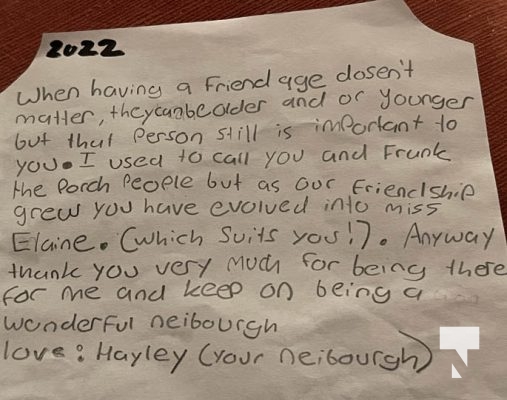 2022
When having a friend age dosen't
matter, theycanbeolder and or younger
but that Person still is important to
you. I used to call you and Frank
the Porch People but as our Friendship
grew you have evolved into miss
Elaine. (which suits you!). Anyway
thank you very much for being there
For me and keep on being a
wonderful neibourgh
love: Hayley (your neibourgh)